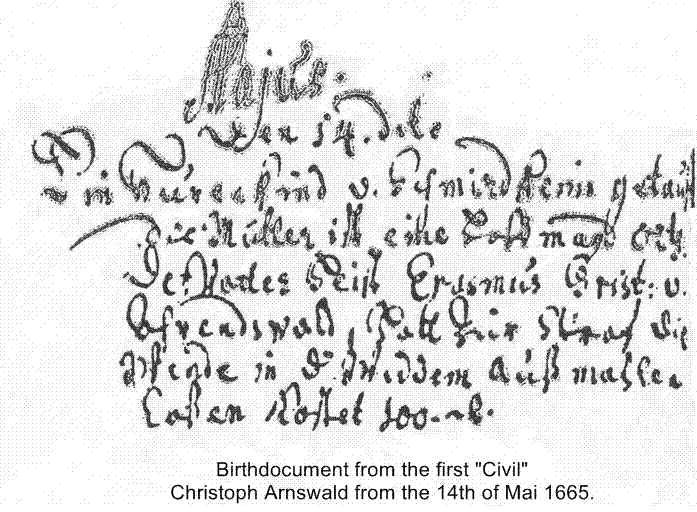 Majus.
Den 14. dito
Ein Hurenkind v. getauft
die Mutter ist eine
Der Vater heist Erasmus Christ: v.
Ahrendswald, hatt zur Straf die
in d. außmahlen
laßen kostet 100
Birthdocument from the first "Civil"
Christoph Arnswald from the 14th of Mai 1665.